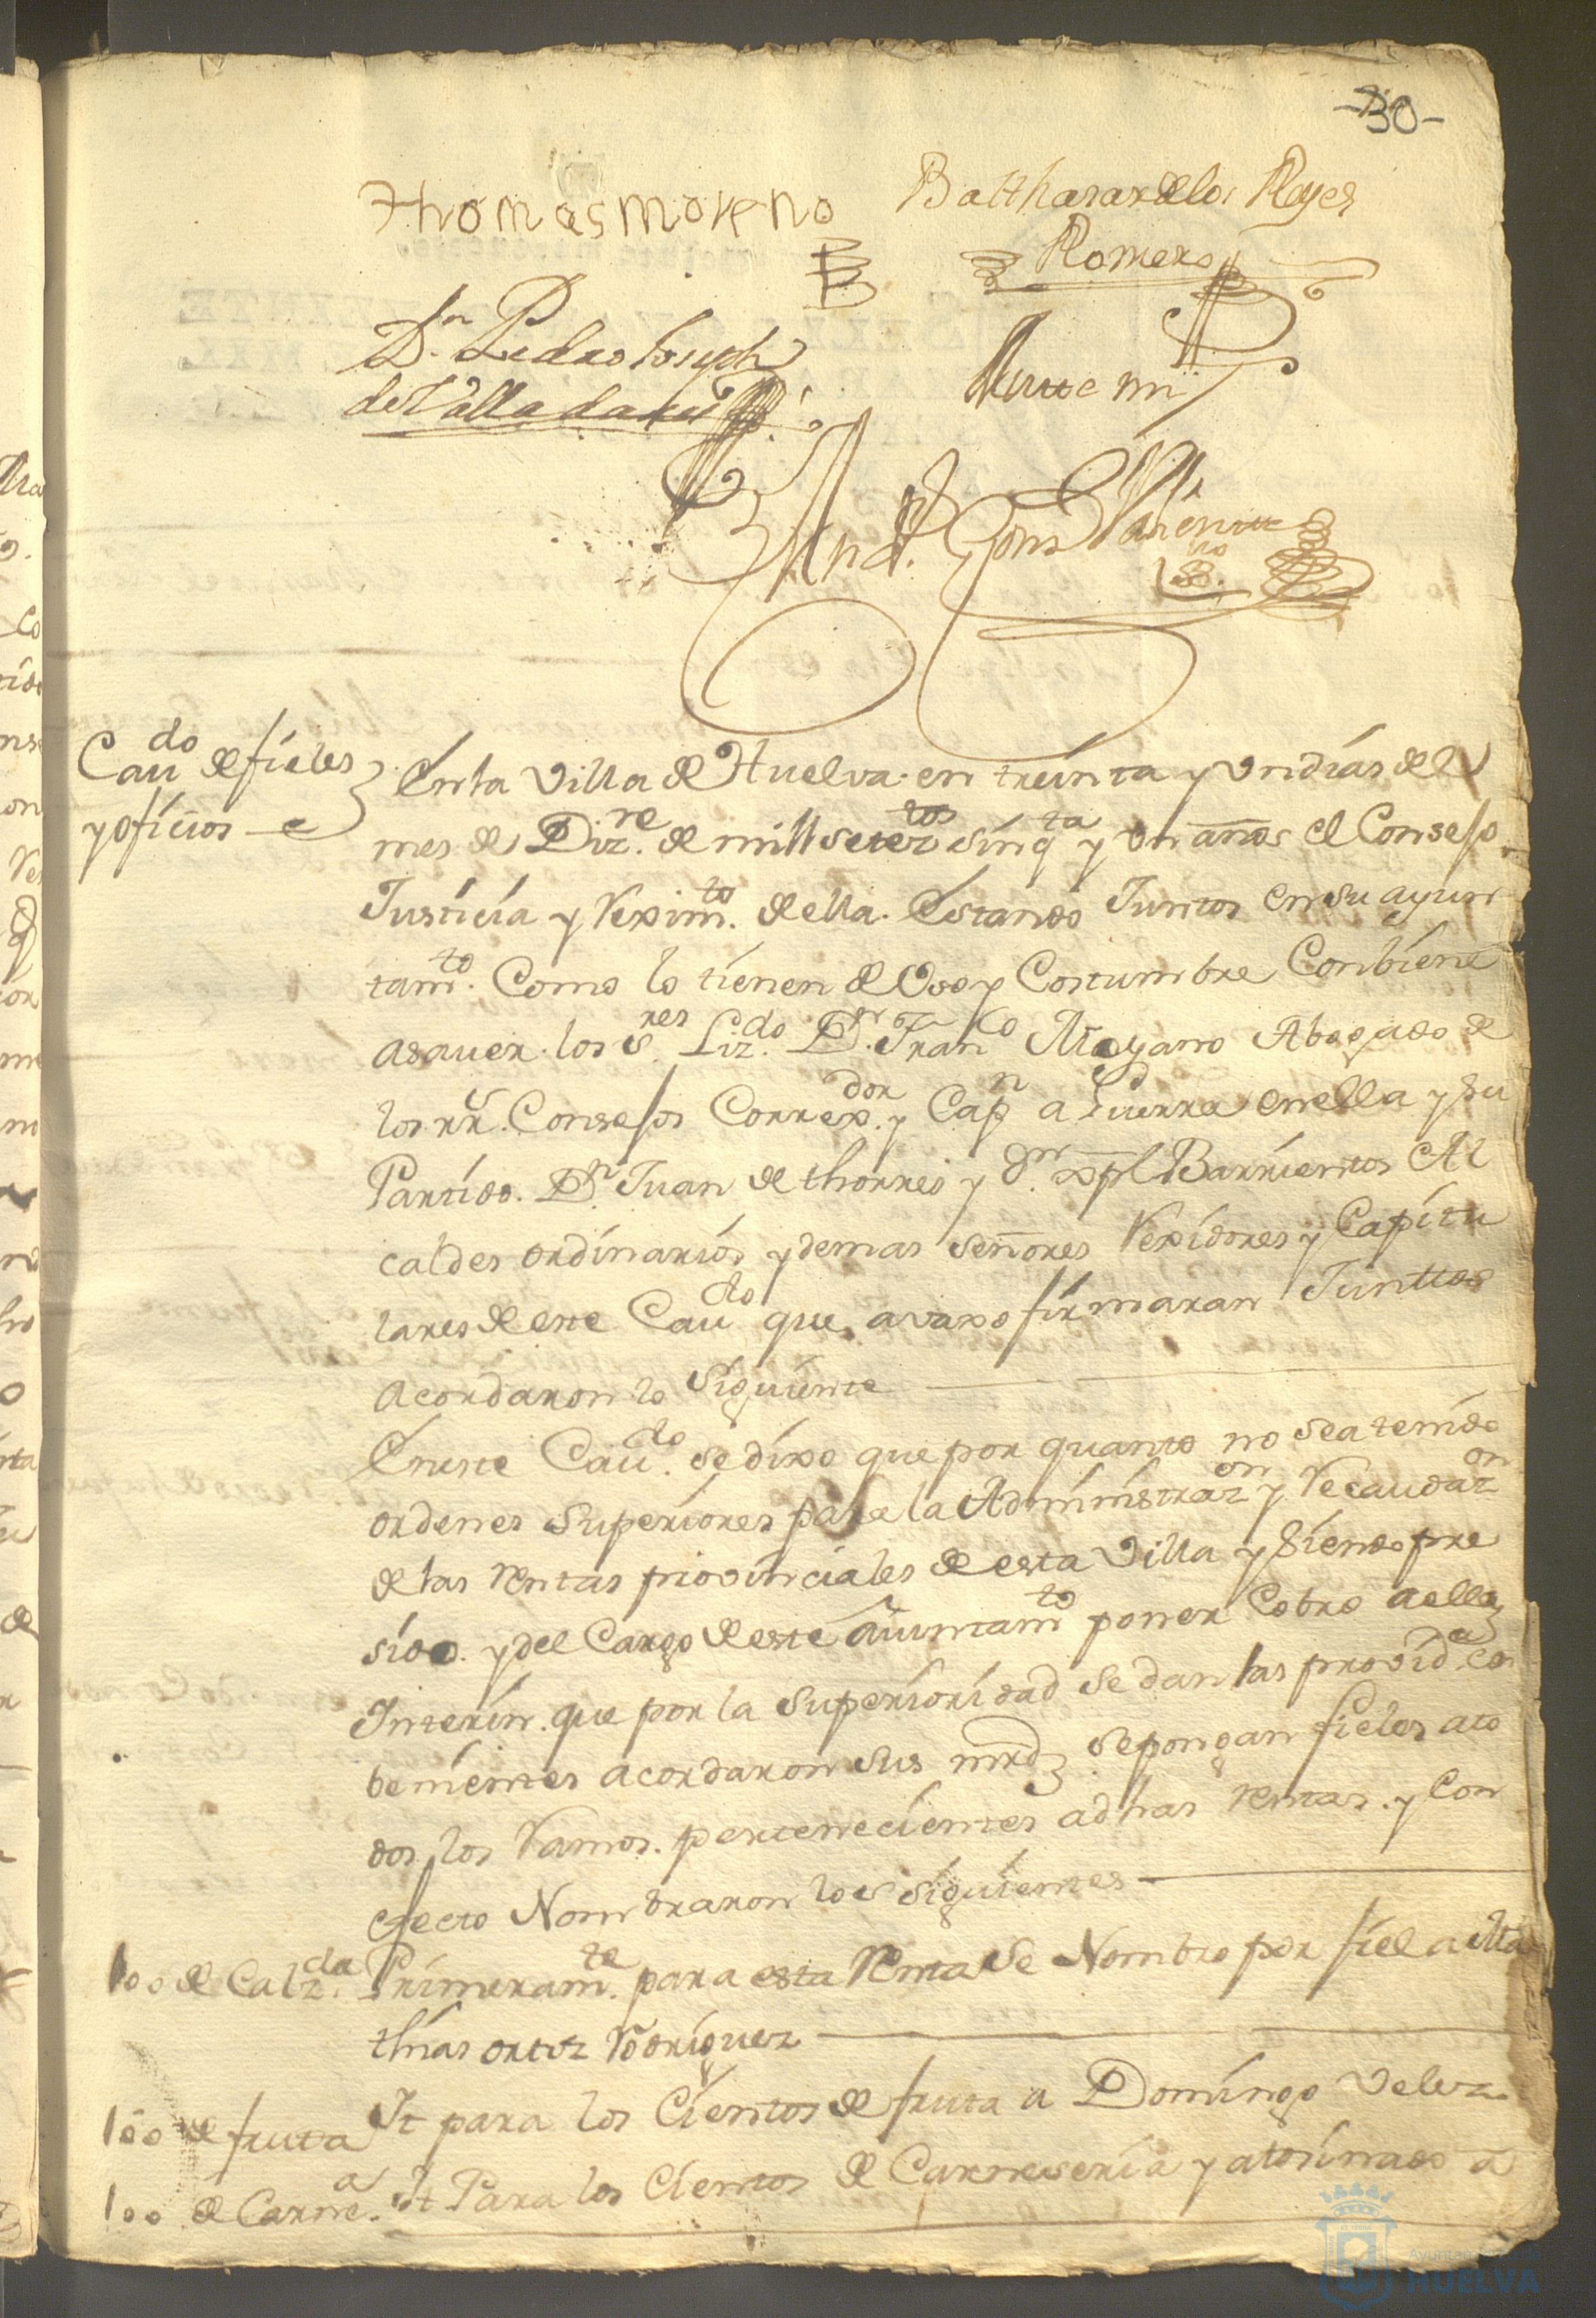 -30-
Thomas Moreno Balthasar de los Reyes
Romero
Dn. Pedro Joseph
de Valladares
Antte mi
And. Gonz Valiente
Cau.do de fieles
y oficios
En la Villa de Huelva en treinta y un días del
mes de Diz.re de mill setez.tos sinq.ta y un años el Consejo
Justicia y Rexim.to de ella. Estando Juntos en su ayun
tam.to Como lo tienen de Vso y Costumbre Conbiene
asauer. los S.res Liz.do Dn. Fran.co Moyano Abogado de
los RR.s Consejos Correx.dor y Cap.n a Guerra en ella y su
Partido. Dn. Juan de thorres y dn. Xpl Barrientos Al
caldes ordinarios y demas señores Rexidores y Capitu
lares de este Cau.do que avaxo firmaran Junttos
Acordaron lo Siguiente
En este Cau.do se dixo que por quanto no se a tenido
ordenes Superiores para la Administraz.on y Recaudaz.on
de las Rentas provinciales de esta Villa y siendo pre
siso. y del Cargo de este aiuntam.to poner Cobro a ellas
Interin. que por la Superioridad se dan las provid.as con
benientes acordaron sus mrds. se pongan fieles a to
dos los Ramos. pertenecientes a dhas Rentas. y Con
efecto Nombraron los siguientes
100 de Calz.da Primeram.te para esta Renta se Nombro por fiel a Ma
thias ortiz Rodriguez
100 de fruta It para los Cientos de fruta a Domingo Velez
100 de Carne.a It Para los Cientos de Carneseria y atosinado a
Ayuntamiento de
HUELVA